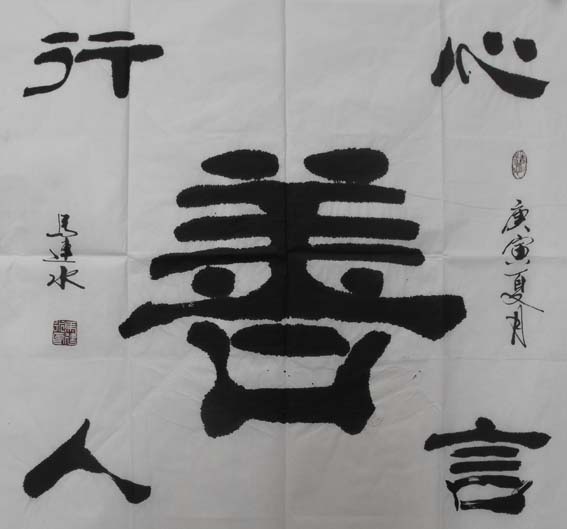 心
言
庚寅夏月
善
行
人
马建水